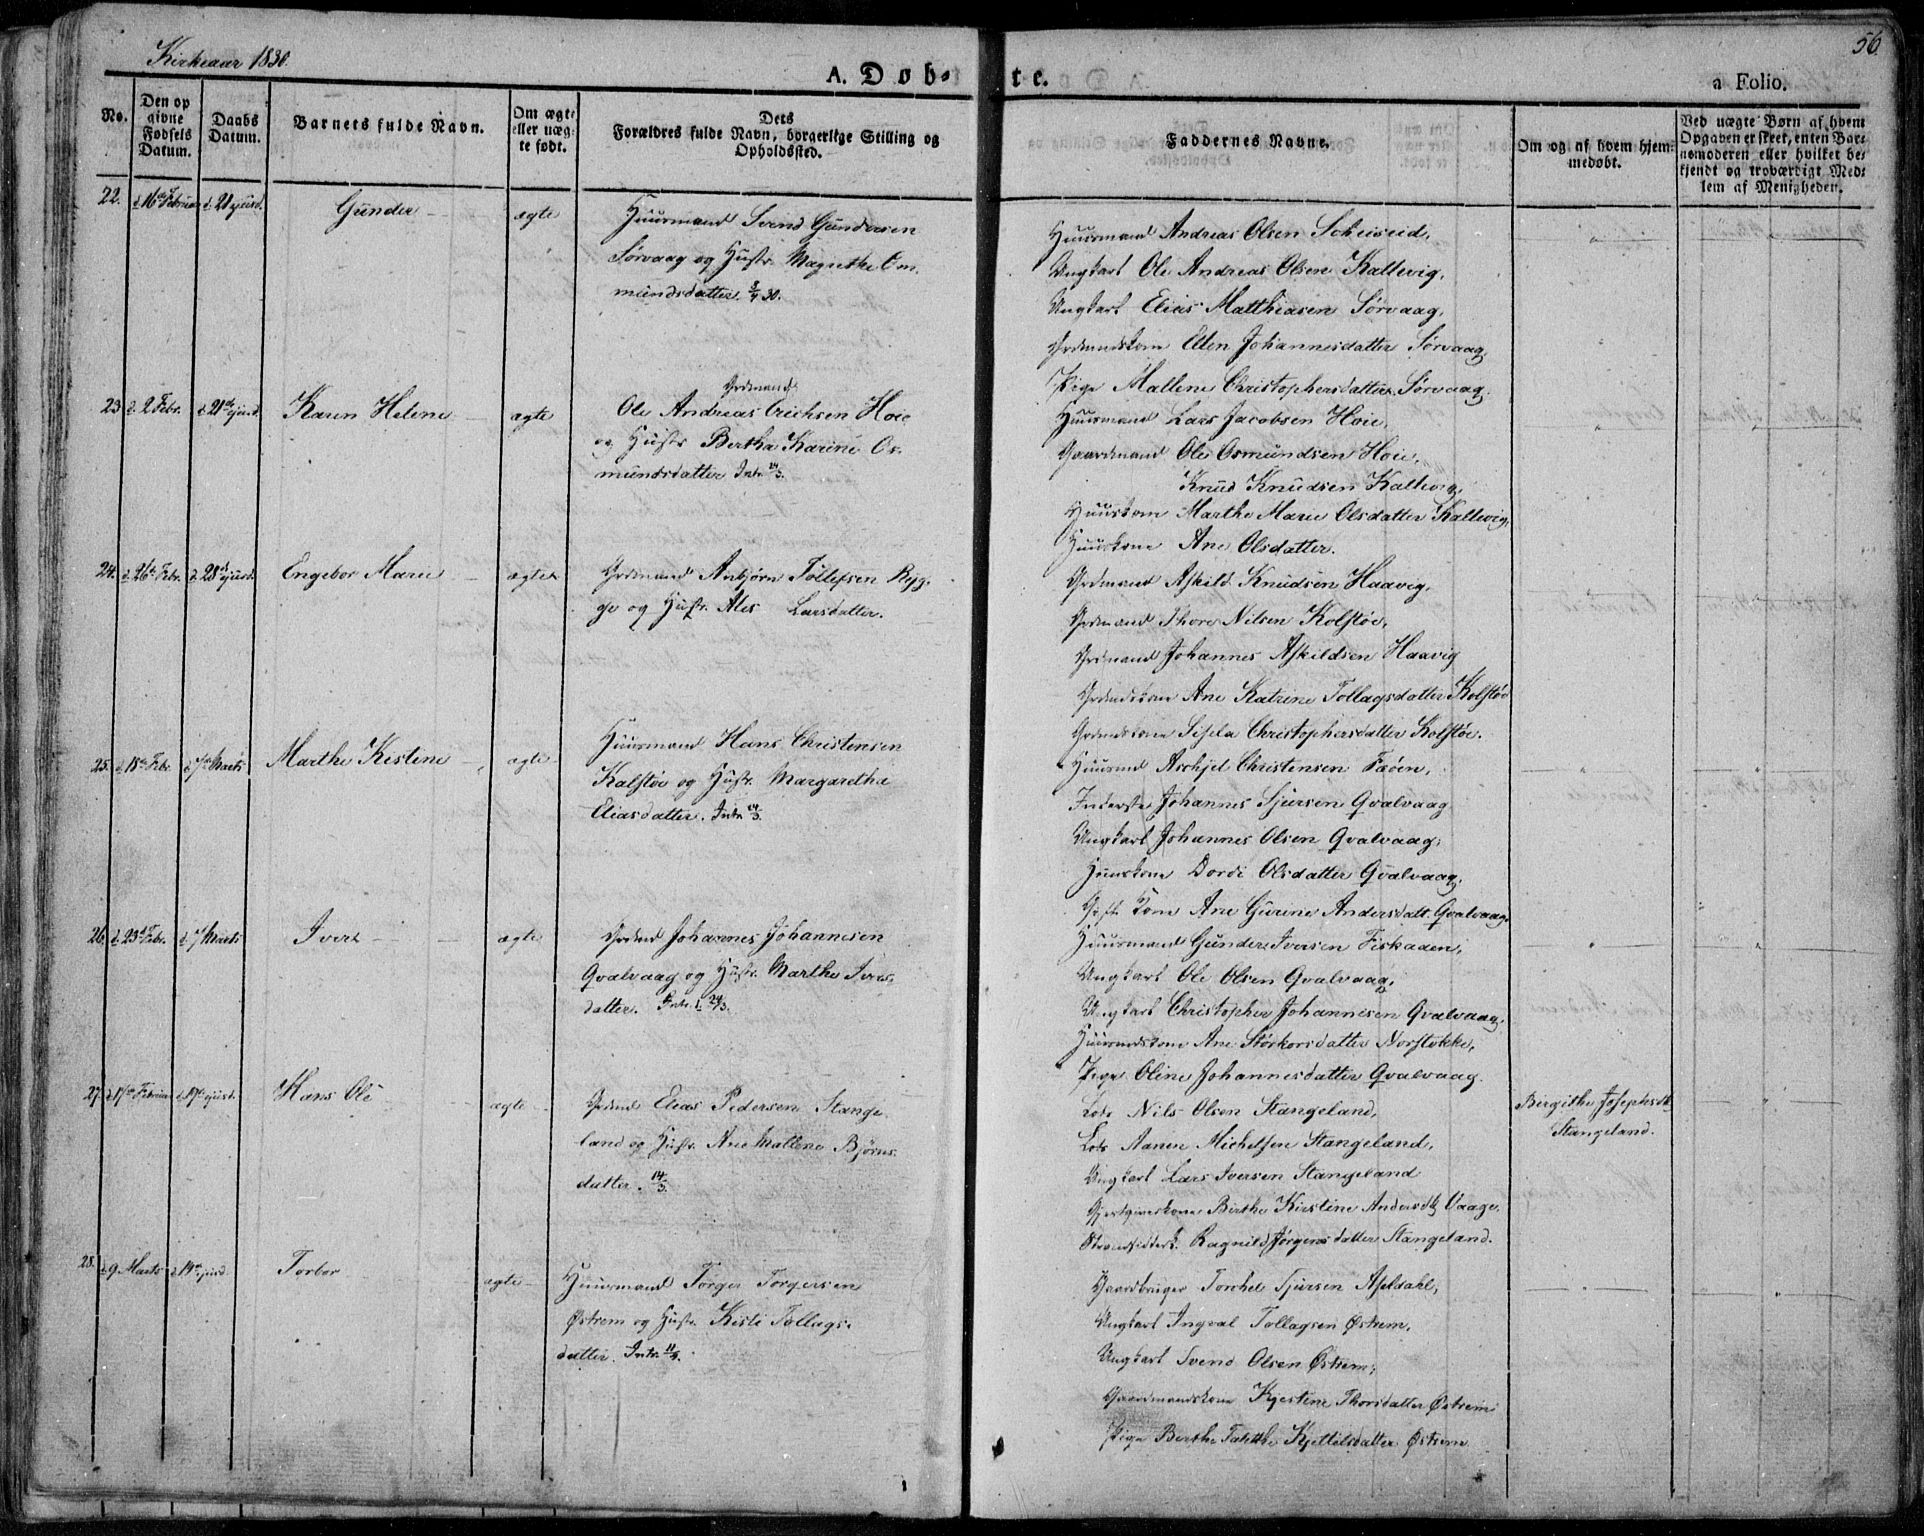 Kirkeaar 1830.
A. Døb-
te.
a Folio.
56
No.
Den op
givne
Fødsels
Datum.
Daabs
Datum.
Barnets fulde Navn.
Om ægte
eller uæg-
te født.
Dets
Forældres fulde Navn, borgerlige Stilling og
Opholdssted.
Faddernes Navne.
Om og af hvem hjem-
medøbt.
Ved uægte Børn af hvem
Opgaven er skeet, enten Bar-
nemoderen eller hvilket be-
kjendt og troværdigt Med-
lem af Menigheden.
22.
d. 16de Februar
d. 21 ejusd.
Gunder
ægte
Huusmand Svend Gundersen
Sørvaag og Hustr. Magrethe Om-
mundsdatter. 30.
Huusmand Andreas Olsen
Ungkarl Ole Andreas Olsen Kallevig,
Ungkarl Elias Matthiasen Sørvaag,
Grdmandskone Ellen Johannesdatter Sørvaag,
Pige Mallene Christophersdatter Sørvaag.
23
d. 2 Febr.
d. 21de ejusd.
Karen Helene
ægte
Grdmand
Ole Andreas Erichsen Høie
og Hustr Bertha Karine Os-
mundsdatter Intr. 24/3.
Huusmand Lars Jacobsen Høie,
Gaardmand Ole Osmundsen Høie,
Knud Knudsen Kallevig,
Huuskone Marthe Marie Olsdatter Kallevig,
Huuskone Ane Olsdatter.
24.
d. 26de Febr.
d. 28de ejusd.
Engebor Marie
ægte
Grdmand Anbjørn Tollefsen Ryg-
ge og Hustr. Ales Larsdatter.
Grdmand Askild Knudsen Haavig,
Grdmand Thore Nilsen Kolstøe,
Grdmand Johannes Askildsen Haavig
Grdmdskone Ane Katrine Tollagsdatter Kolstøe
Grdmdskone Sissela Christophersdatter Kolstøe.
25.
d. 18de Febr.
d. 7de Marts
Marthe Kestine
ægte
Huusmand Hans Christensen
Kalstøe og Hustr. Margaretha
Eliasdatter. Intr. 24/3.
Huusmd Asskjel Christensen Fæøen,
Inderste Johannes Sjursen Qvalvaag
Ungkarl Johannes Olsen Qvalvaag,
Huuskone Dordi Olsdatter Qvalvaag,
Gift Kone Ane Gurine Andersdatt. Qvalvaag.
26.
d. 23de Febr.
d. 7 Marts
Ivert
ægte
Grdmd Johannes Johannesen
Qvalvaag og Hustr. Marthe Ivers-
datter. Intr. d. 24/3.
Huusmand Gunder Iversen Fiskaaen,
Ungkarl Ole Olsen Qvalvaag,
Ungkarl Christopher Johannesen Qvalvaag,
Huusmdskone Ane Størkorsdatter Norstokke,
Pige Oline Johannesdatter Qvalvaag.
27.
d. 17de Februar
d. ejusd.
Hans Ole
ægte
Grdmd Elias Pedersen Stange-
land og Hustr. Ane Mallene Bjørns-
datter. 14/3.
Lods Nils Olsen Stangeland,
Lods Aanen Michelsen Stangeland,
Ungkarl Lars Iversen Stangeland
Gjestgiverskone Birthe Kirstine Andersdtr Vaage,
Strandsidderk. Ragnild Jørgensdatter Stangeland.
Bergithe Josephsdtr
Stangeland.
28.
d. 9 Marts
d. 14de ejusd.
Torbor
ægte
Huusmand Torger Torgersen
Østrem og Hustr. Kisti Tollags-
datter. Intr.
Gaardbruger Torchel Sjursen Aseldahl,
Ungkarl Ingval Tollagsen Østrem,
Ungkarl Svend Olsen Østrem,
Gaardmandskone Kjestine Thorsdatter Østrem
Pige Berthe Kjettilsdatter Østrem